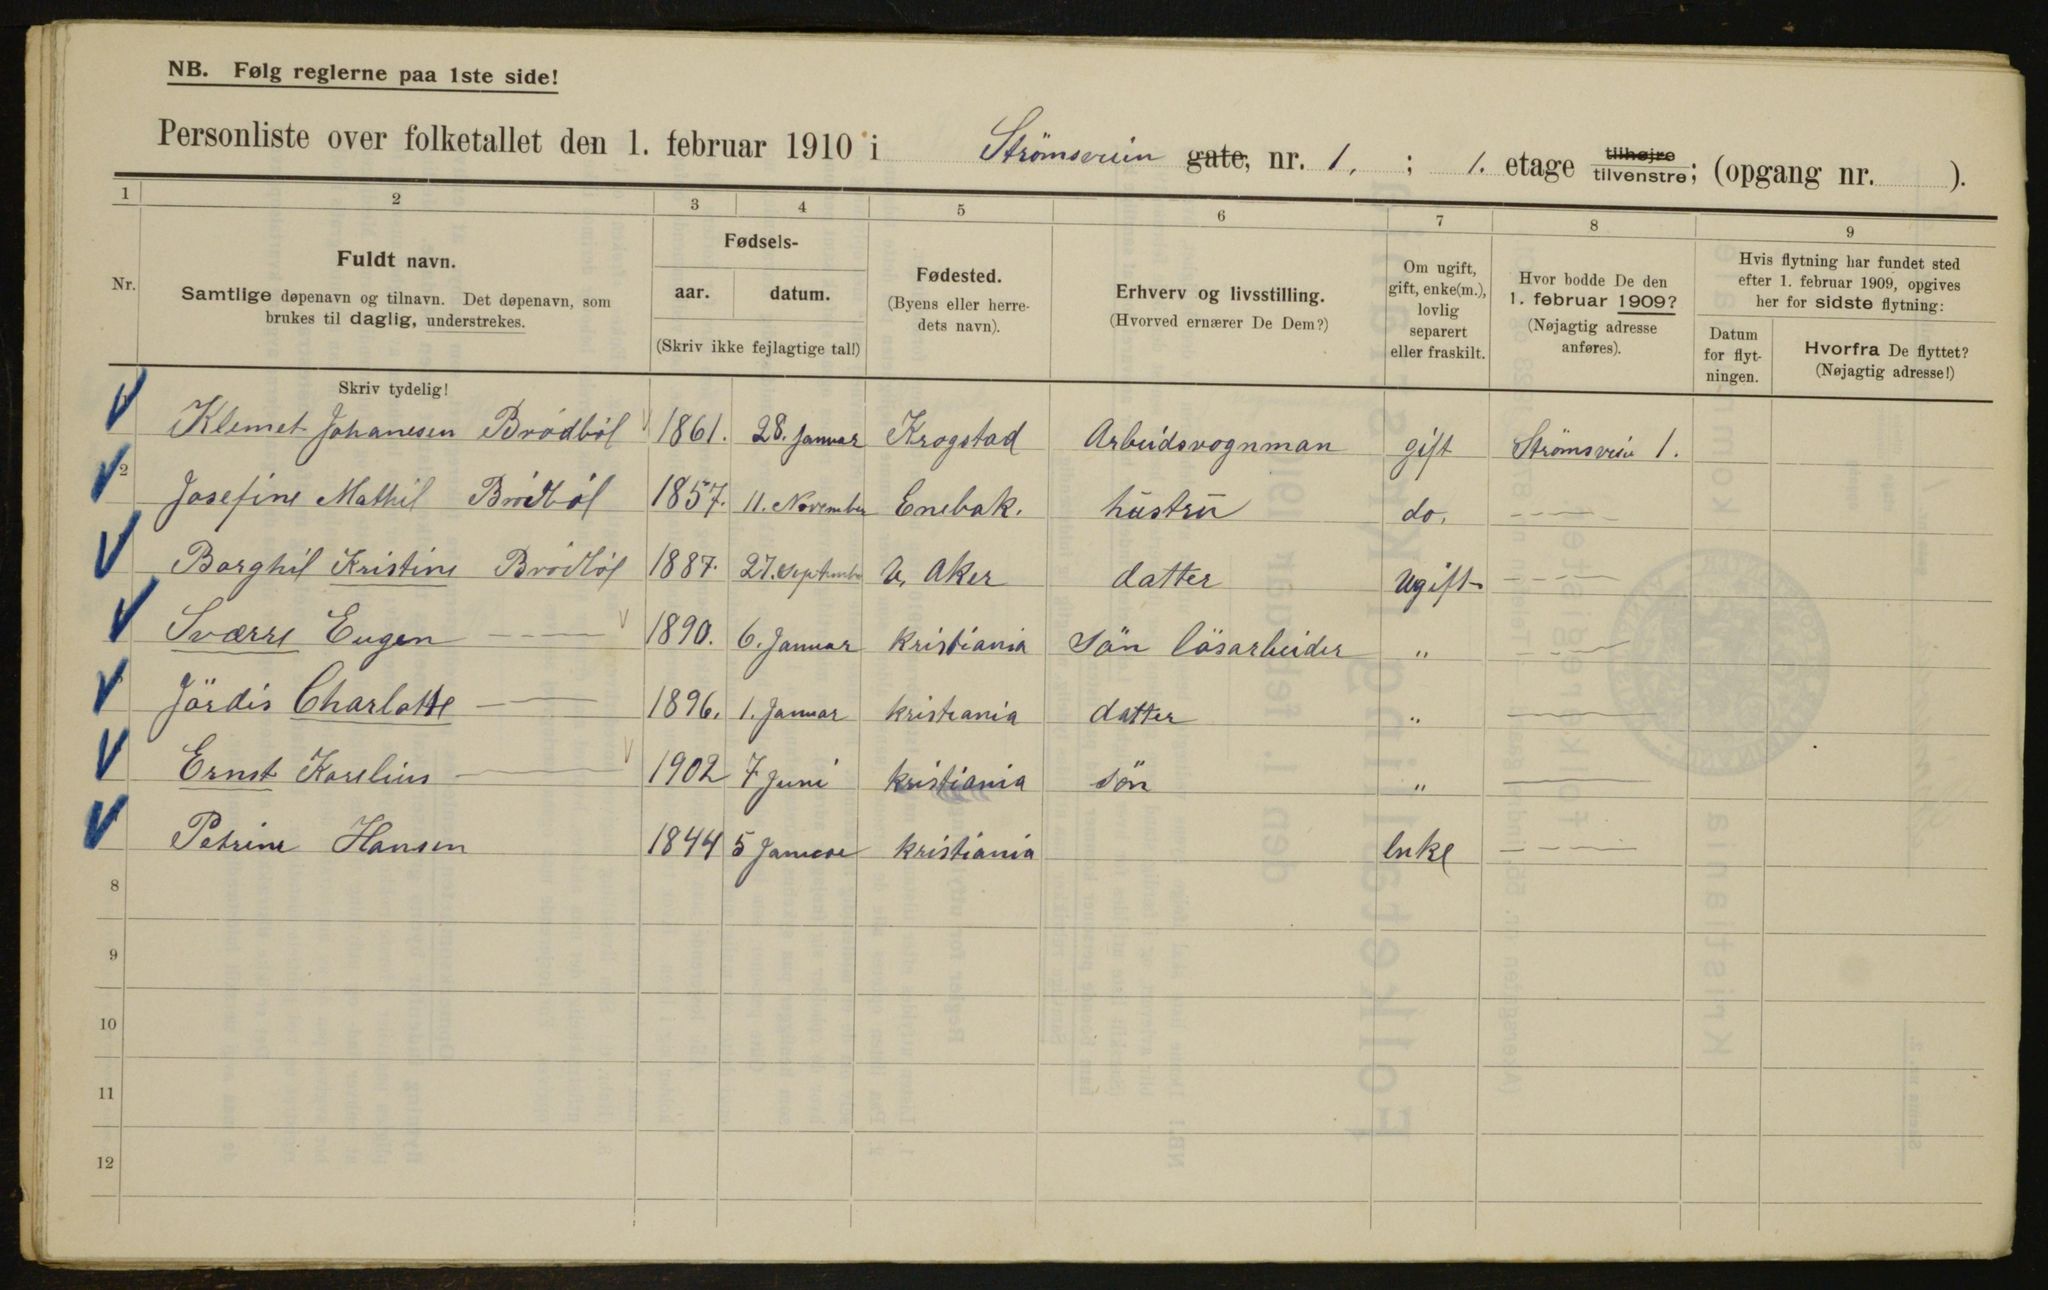 NB. Følg reglerne paa 1ste side!
Personliste over folketallet den 1. februar 1910 i Strömsveien gate, nr. 1, ; 1. etage tilhøjre tilvenstre; (opgang nr. ).
1 2 3 4 5 6 7 8 9
Nr.
Fuldt navn.
Samtlige døpenavn og tilnavn. Det døpenavn, som
brukes til daglig, understrekes.
Skriv tydelig!
Fødsels-
aar. datum.
(Skriv ikke fejlagtige tal!)
Fødested.
(Byens eller herre-
dets navn).
Erhverv og livsstilling.
(Hvorved ernærer De Dem?)
Om ugift,
gift, enke(m.),
lovlig
separert
eller fraskilt.
Hvor bodde De den
1. februar 1909?
(Nøjagtig adresse
anføres).
Hvis flytning har fundet sted
efter 1. februar 1909, opgives
her for sidste flytning:
Datum
for flyt-
ningen.
Hvorfra De flyttet?
(Nøjagtig adresse!)
Klemet Johanesen Brödböl 1861. 28. Januar Krogstad Arbeidsvognman gift Strömsveien 1.
2 Josefine Mathil Brödböl 1857. 11. November Enebak. hustru do. — — —
Borghil Kristine Brödböl 1887. 27. September V. Aker datter Ugift — — —
Sværre Eugen — — — 1890. 6. Januar Kristiania Sön lösarbeider " — — —
Jördis Charlotte — — 1896. 1. Januar Kristiania datter " ———
Ernst Karelius ——— 1902 7 Juni Kristiania Sön " ———
Petrine Hansen 1844 5 Januar Kristiania Enke — — —
8
9
10
11
12